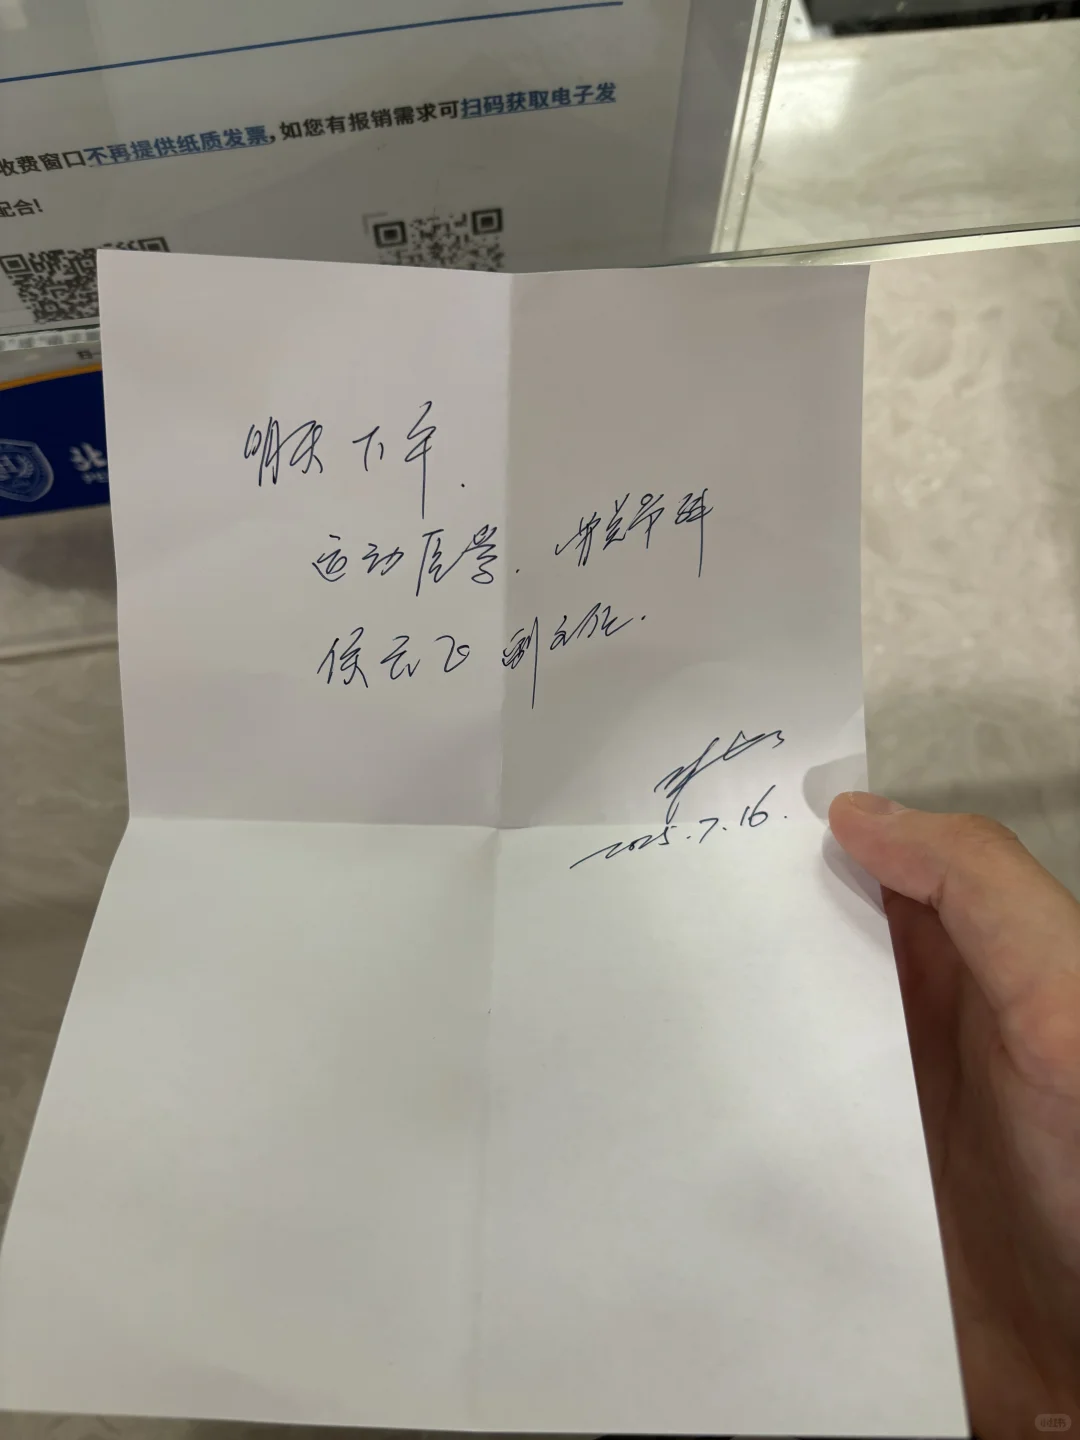 收费窗口不再提供纸质发票,如您有报销需求可扫码获取电子发
配合!
扫一
北
PE
明天下午.
运动医学. 骨关节科
侯云飞 副主任.
2025.7.16.
小红书